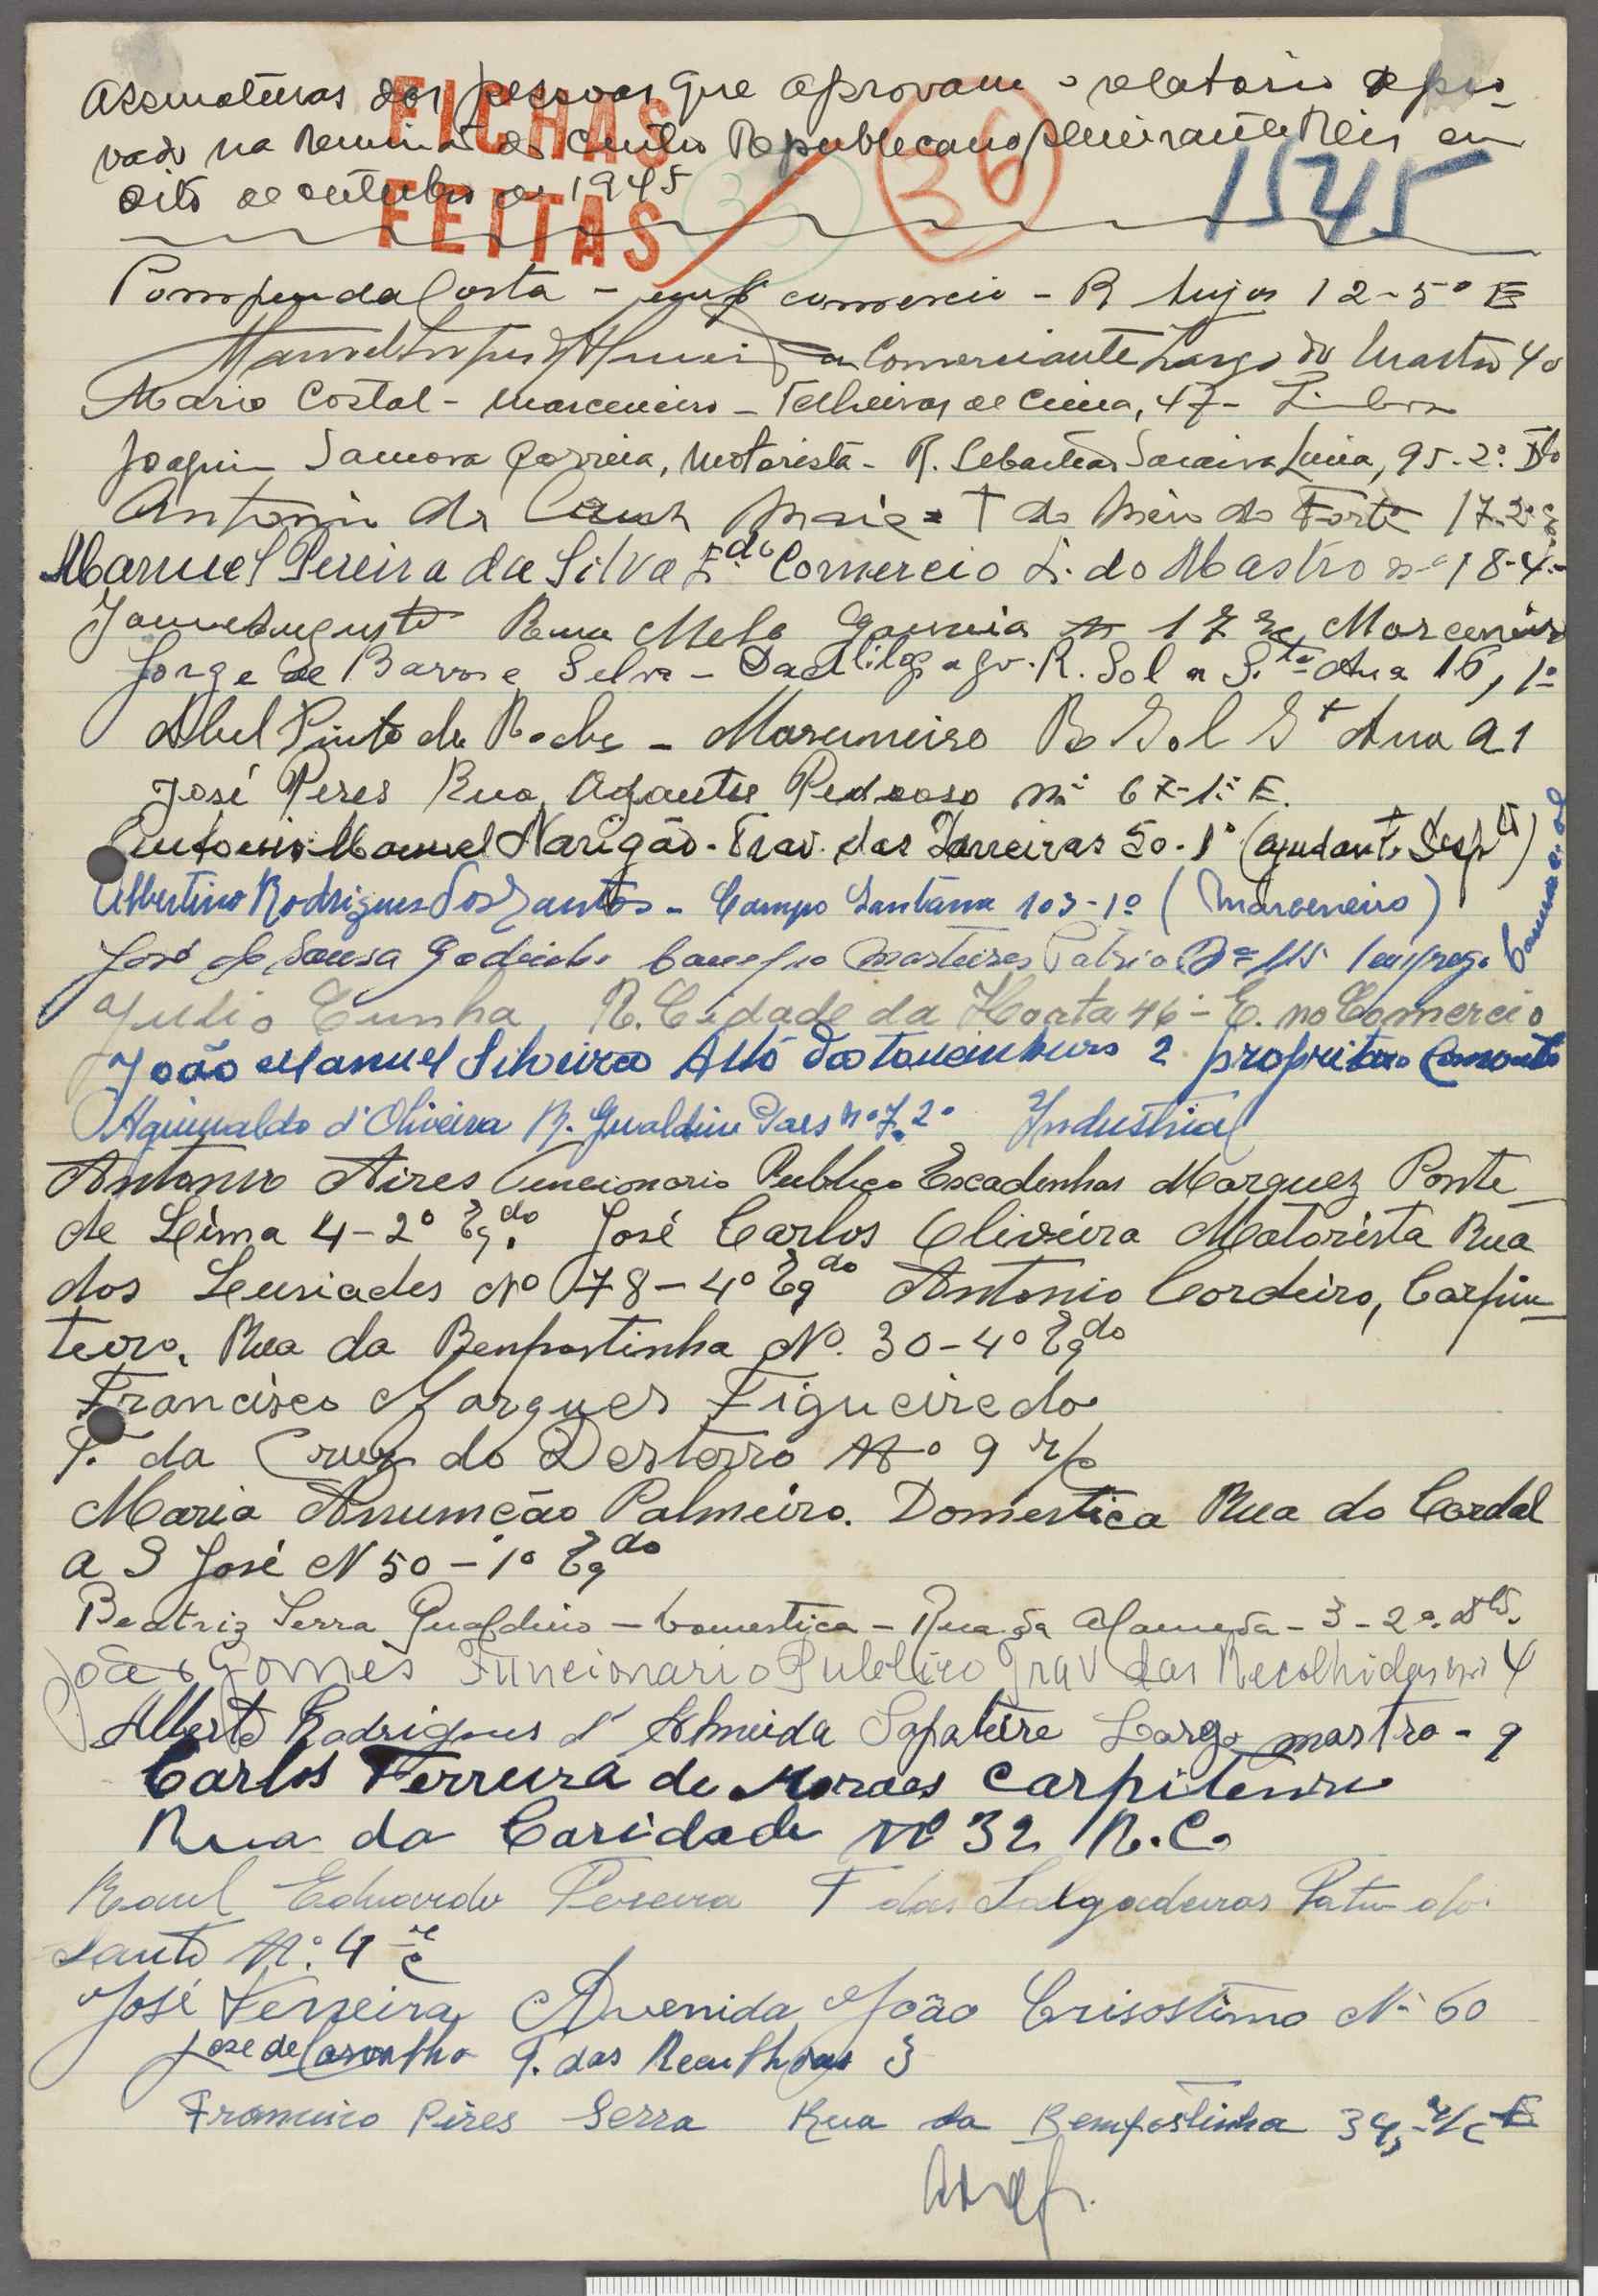 Assinaturas das pessoas que aprovam o relatorio apro-
vado na Reunião do Centro Republicano Almirante Reis em
oito de outubro de 1945
FICHAS
FEITAS
36
35
1545
Pompeu da Costa - comercio - R Anjos 12-5º E
Manuel Comerciante Largo do Mastro 40
Mario Costal - Marceneiro - Telheiras de Cima, 47 - Lisboa
Joaquim Samora Correia, Motorista - R. Sebastião Saraiva Lima, 95-2º Dto
Antonio da Maia T do Meio do Forte 17-2º E.
Manuel Pereira da Silva E.do Comercio L. do Mastro nº 18-4.
Jaime Augusto Rua Melo Gouveia Nº 17 Marceneiro
Jorge de Barros e Silva - R. Sol a S.ta Ana 16, 1º
Abel Pinto da Rocha - Marceneiro R Sol St Ana 21
José Peres Rua Agante Pedroso nº 67-1º E.
Antonio Manuel Narigão - Trav. das Parreiras 50-1º (ajudante Desp)
Albertino Rodrigues dos Santos - Campo Santana 103-1º (Marceneiro)
José de Sousa Godinho Campo Martires Patria Nº 115 Empreg. Camara
Julio Cunha R. Cidade da Horta 46 - E. no Comercio
João Manuel Silveira Alto do 2
Aguinaldo d'Oliveira R. Gualdim Pais nº 7, 2º Industrial
Antonio Aires Funcionario Publico Escadinhas Marquez Ponte
de Lima 4-2º Eg.do José Carlos Oliveira Motorista Rua
dos Lusiades Nº 78-4º Eg.do Antonio Cordeiro, Carpin-
teiro, Rua da Benpostinha Nº. 30-4º Eg.do
Francisco Marques Figueiredo
T. da Cruz do Desterro Nº 9 r/c
Maria Anumção Palmeiro. Domestica Rua do Cardal
a S José N 50-1º Eg.do
Beatriz Serra Gualdino - Domestica - Rua da Alameda - 3-2º. Dto.
João Gomes Funcionario Publico Trav das Recolhidas nº 4
Alberto Rodrigues d'Almeida Sapateire Largo mastro - 9
Carlos Ferreira de Moraes Carpiteiro
Rua da Caridade Nº 32 R.C.
Raul Eduardo Pereira T das Salgadeiras
Santo Nº. 4 r/c
José Ferreira Avenida João Crisostimo Nº 60
Jose de Carvalho T. das 3
Francisco Pires Serra Rua da Bempostinha 34, r/c E